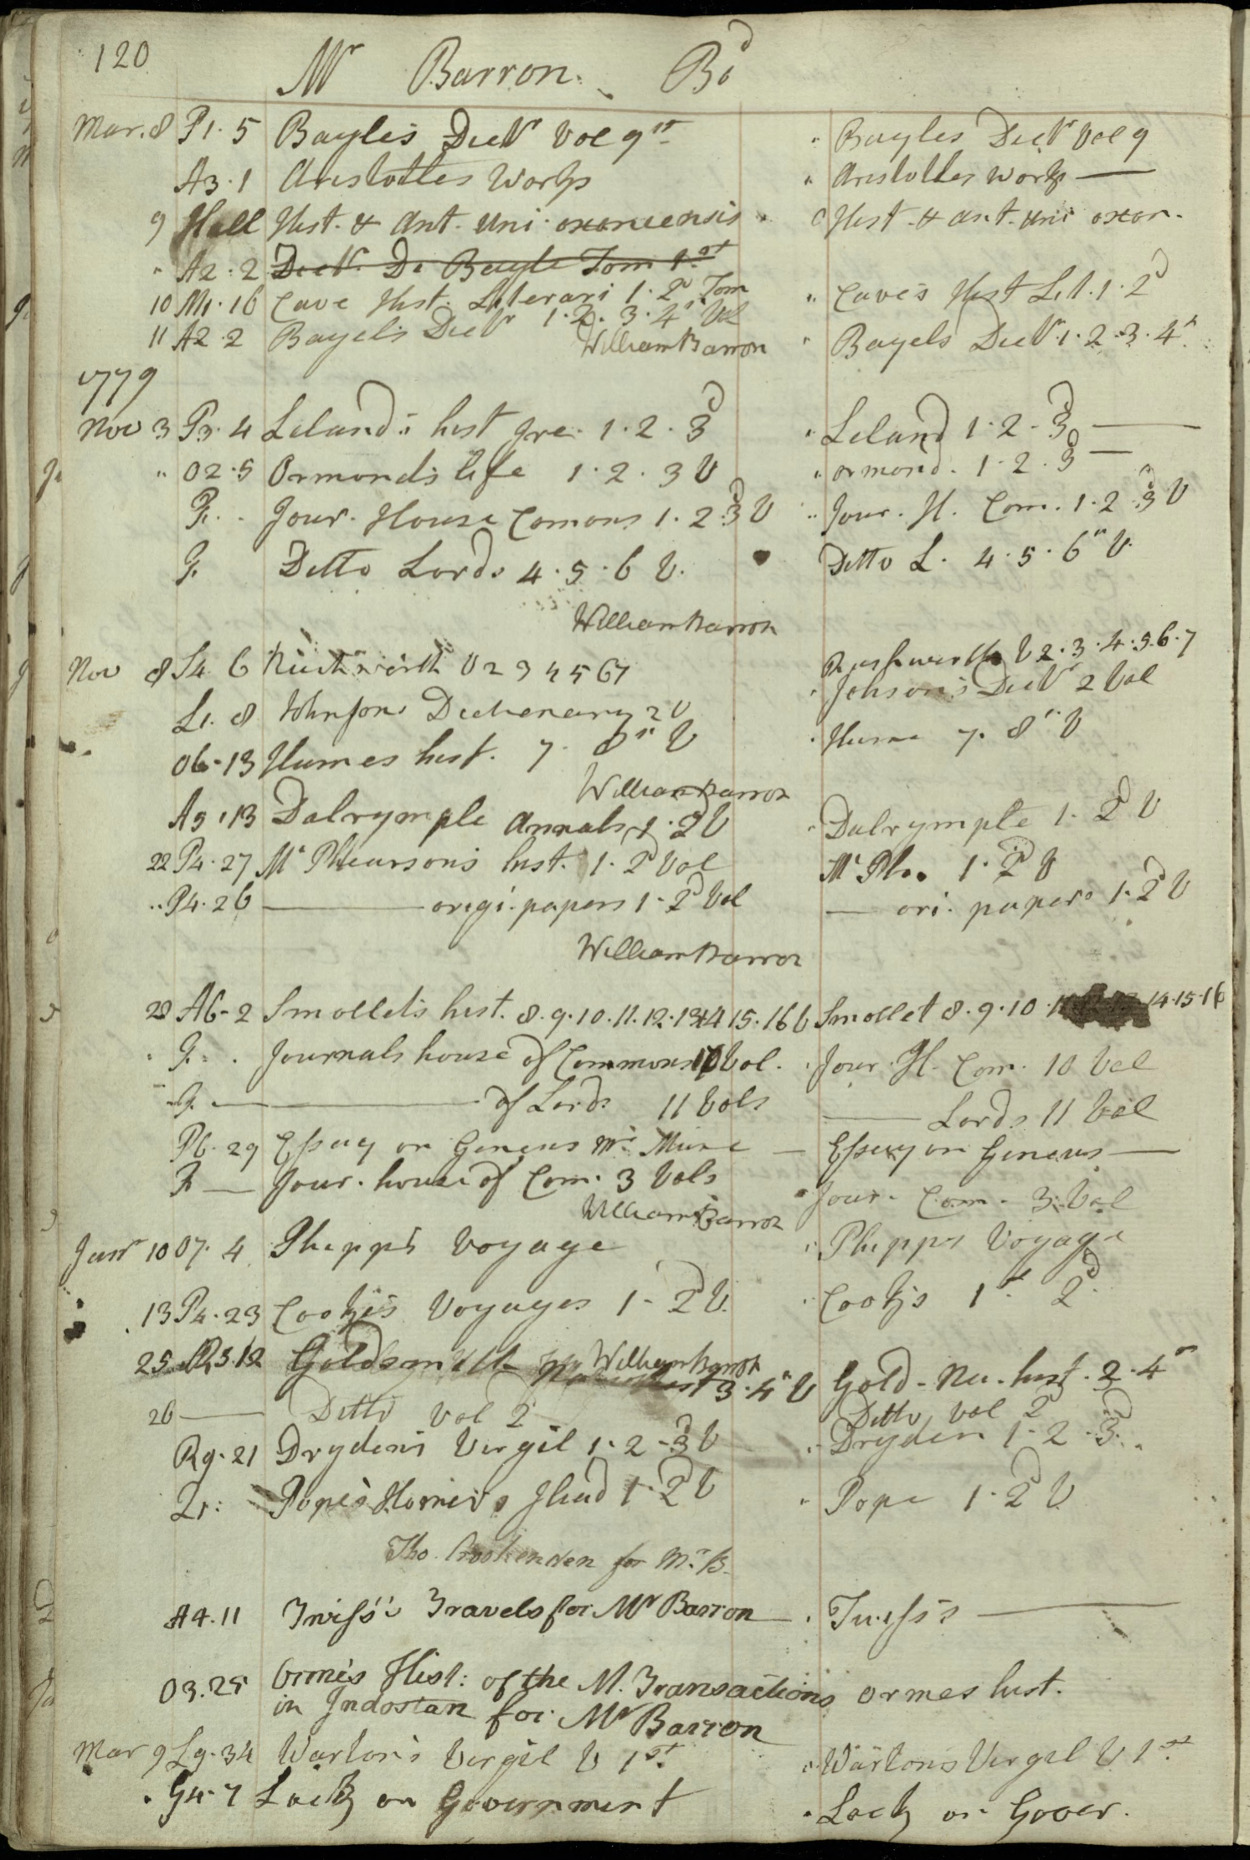 120
Mr Barron. Bd
Mar. 8 P1. 5 Bayle's Dictr Vol 9th " Bayles Dictr Vol 9
A3. 1 Aristotles Works " Aristotles works —
9 Hall Hist. & Ant. Uni. oxoniensis Hist. & Ant. Uni oxon.
" A2. 2 Dictr. De Bayle Tom 1st
10 M1. 16 Cave Hist. Literari 1. 2d Tom " Cave's Hist Lit. 1. 2d
11 A2. 2 Bayel's Dictr 1. 2. 3. 4th Vol " Bayels Dictr. 1. 2. 3. 4th
William Barron
1779
Nov 3 P3. 4 Leland's hist gre. 1. 2. 3d " Leland 1. 2. 3d —
" O2. 5 Ormond's life 1. 2. 3 V " ormond. 1. 2. 3 —
Jour. House Comons 1. 2 3d V Jour. H. Com. 1. 2 3d V
G. Ditto Lords 4. 5. 6 V. Ditto L. 4. 5. 6th V.
William Barron
Nov 8 S4 6 Rushworth V 2 3 4 5 6 7 Rushworth V 2. 3. 4. 5. 6. 7
L1. 8 Johnsons Dictionary 2 V Johson's Dictr 2 Vol
O6. 13 Humes hist. 7. 8th V Hume 7. 8th V
William Barron
A5. 13 Dalrymple Annals 1. 2d V Dalrymple 1. 2d V
22 P4. 27 Mc Phearson's hist. 1. 2d Vol Mc Ph. 1. 2d V
" P4. 26 — origi. papers 1. 2d Vol — ori. papers 1. 2d V
William Barron
28 A6. 2 Smollet's hist. 8. 9. 10. 11. 12. 13. 14 15. 16 V Smollet 8. 9. 10 14. 15. 16
G. Journals house of Commons 10 Vol. Jour. H. Com. 10 Vol
G. — of Lords 11 Vols — Lords 11 Vol
P6. 29 Essay on Genius — Essay on Genius —
— Jour. house of Com. 3 Vols Jour. Com. 3 Vol
William Barron
Janr 10 O7. 4 Phipp's Voyage Phipps Voyage
13 P4. 23 Cook's Voyages 1. 2d V. Cook's 1st 2d.
William Barron
25 R5. 12 Goldsmith hist 3. 4th V Gold. Na. hist. 3. 4th
26 — Ditto Vol 2 Ditto Vol 2
R9. 21 Dryden's Virgil 1. 2. 3d V Dryden 1. 2. 3d.
Pope's Homer's Iliad 1. 2d V " Pope 1. 2d V
Tho. for Mr B.
A4. 11 Twiss's Travels for Mr Barron — Twiss's —
O3. 25 Orme's Hist: of the M. Transactions ormes hist.
in Indostan for Mr Barron
Mar 9 L9. 34 Warton's Virgil V 1st. Wartons Virgil V 1st.
G4. 7 Lock on Government Lock on Gover.